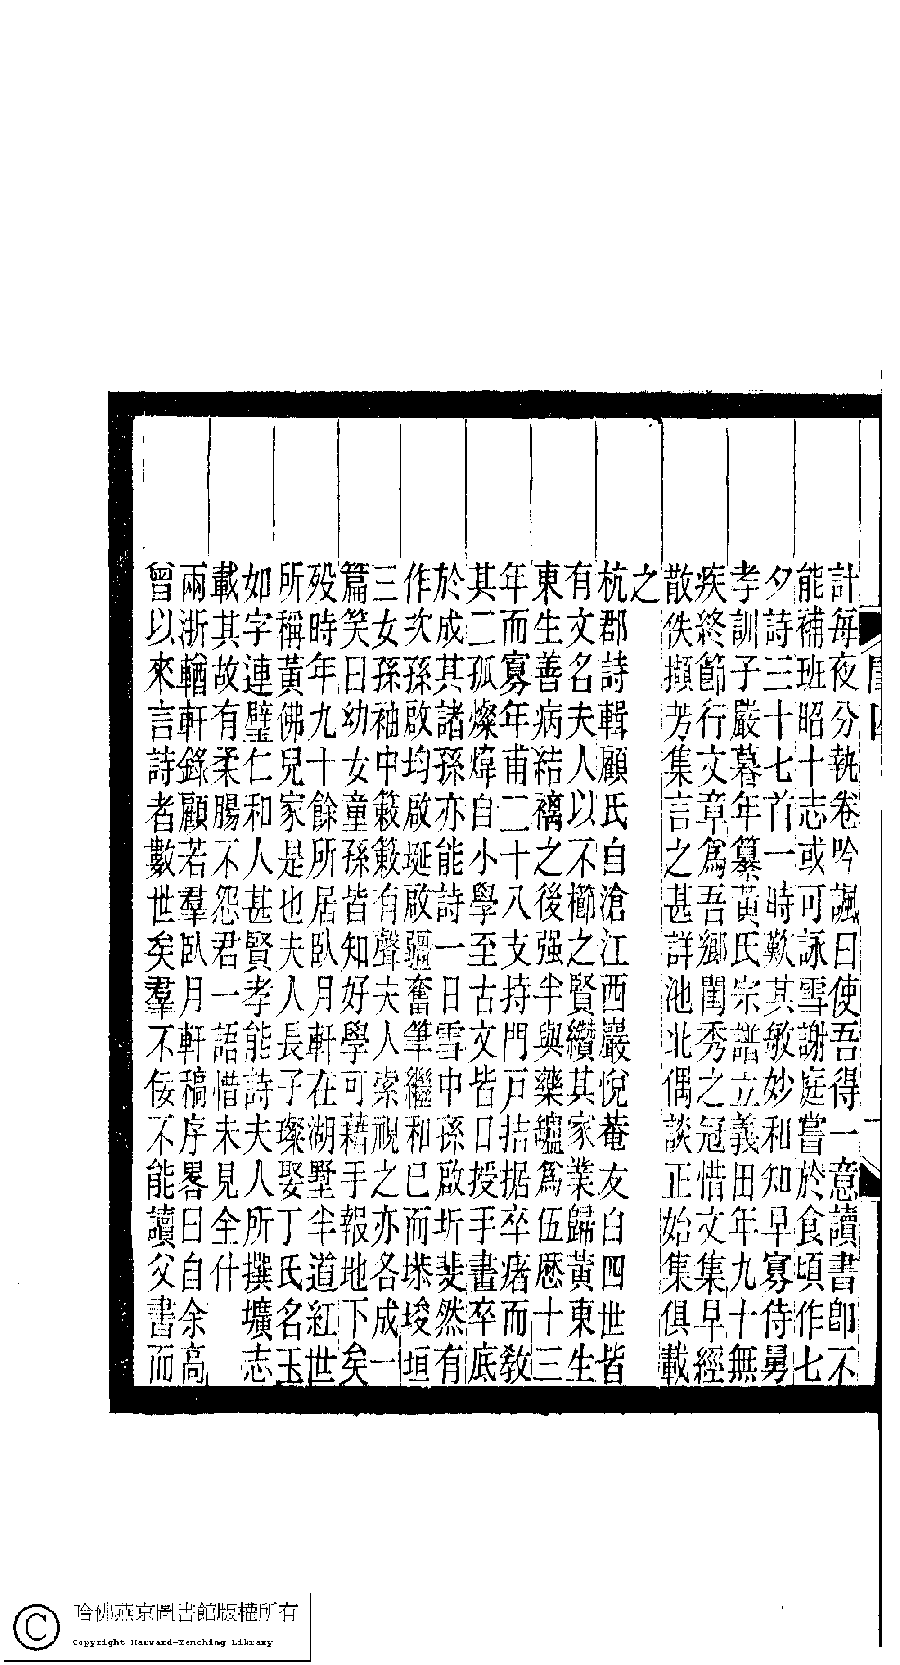 計每夜分執卷吟諷曰使吾得一意讀書卽不
能補班昭十志或可詠雪謝庭嘗於食頃作七
夕詩三十七首一時歎其敏妙和知早寡侍舅
孝訓子嚴暮年纂黃氏宗譜立義田年九十無
疾終節行文章爲吾鄉閨秀之冠惜文集早經
散佚擷芳集言之甚詳池北偶談正始集俱載
之
杭郡詩輯顧氏自滄江西巖悅菴友白四世皆
有文名夫人以不櫛之賢纘其家業歸黃東生
東生善病結褵之後强半與藥罏爲伍歷十三
年而寡年甫二十八支持門戸拮据卒瘏而敎
其二孤燦煒自小學至古文皆口授手畫卒底
於成其諸孫亦能詩一日雪中孫啟圻斐然有
作次孫啟均啟埏啟疆奮筆繼和已而堞埈垣
三女孫袖中簌簌有聲夫人索視之亦各成一
篇笑曰幼女童孫皆知好學可藉手報地下矣
殁時年九十餘所居臥月軒在湖墅半道紅世
所稱黃佛兒家是也夫人長子璨娶丁氏名玉
如字連璧仁和人甚賢孝能詩夫人所撰壙志
載其故有柔腸不怨君一語惜未見全什
兩浙輶軒錄顧若羣臥月軒稿序畧曰自余高
曾以來言詩者數世矣羣不佞不能讀父書而
哈佛燕京圖書館版權所有
Copyright Harvard-Yenching Library